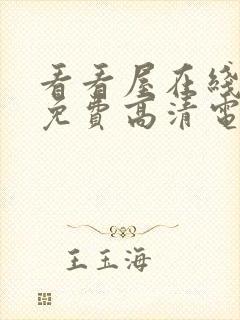 看看屋在线
免費高清電
王玉海